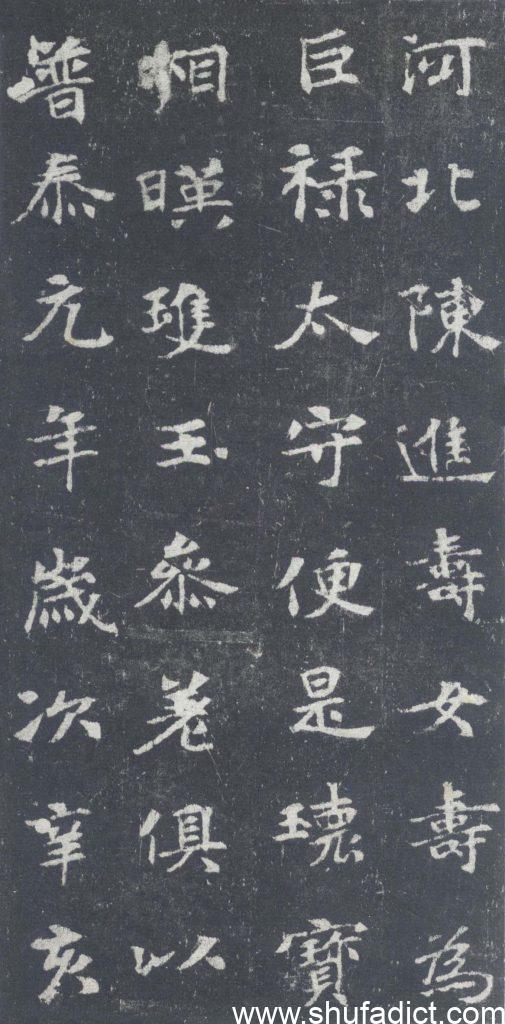 河北陳進壽女壽為
巨禄太守便是瓌寶
相暎瓊玉參差俱以
普泰元年歲次辛亥
www.shufadict.com